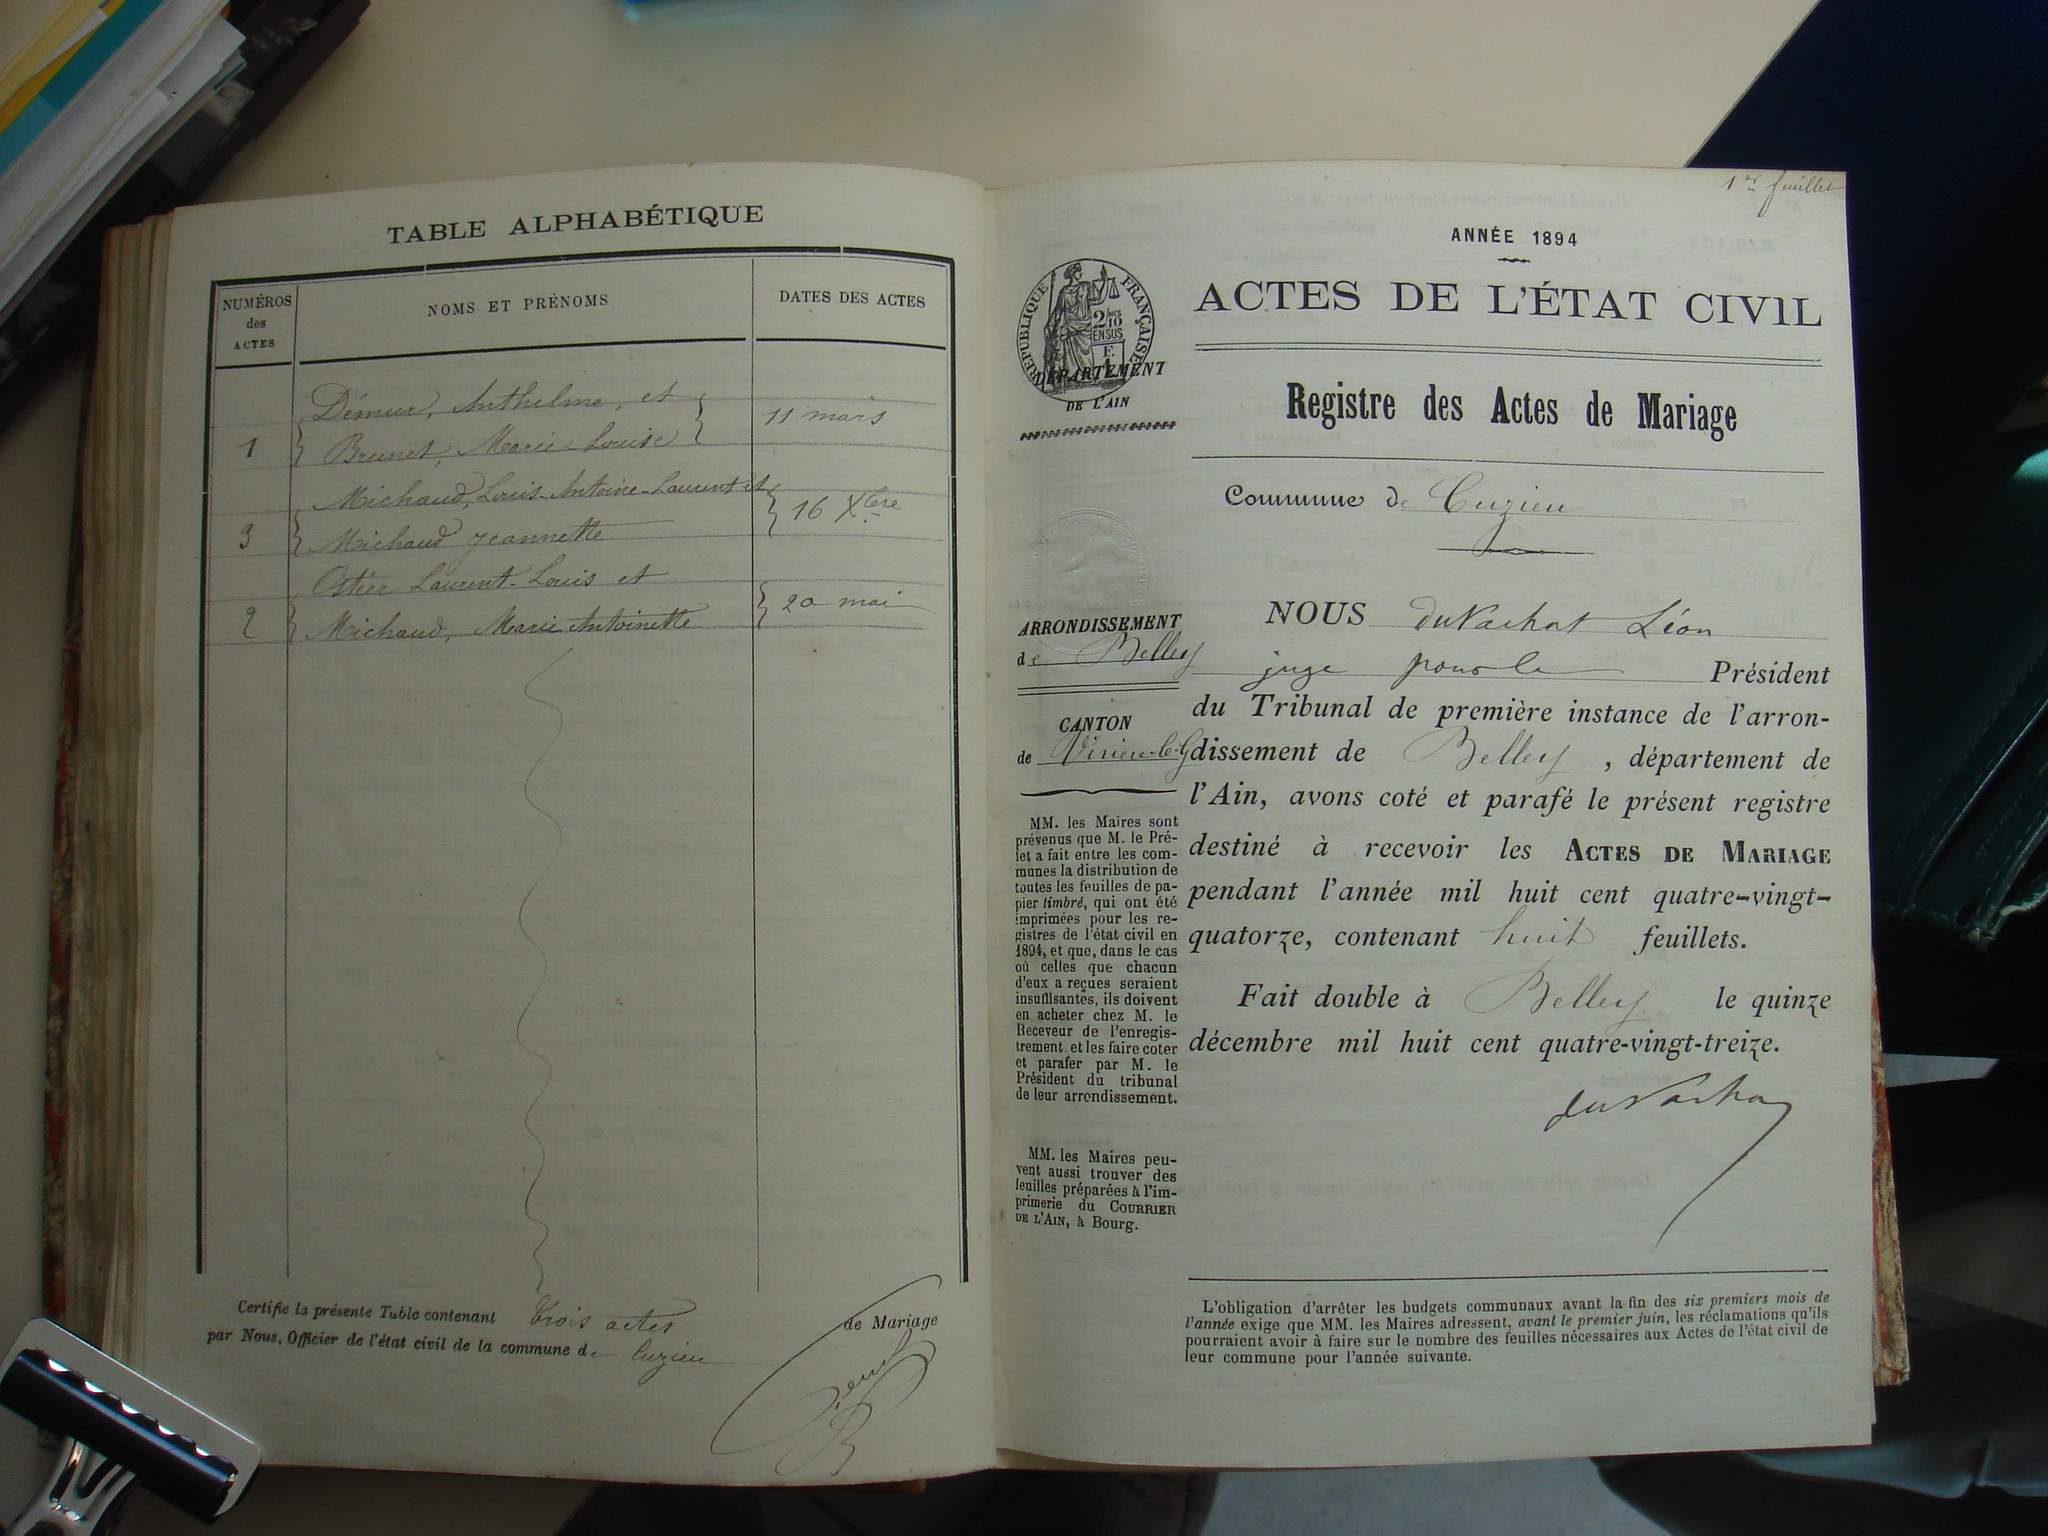 TABLE ALPHABÉTIQUE
NUMÉROS
des
ACTES
NOMS ET PRÉNOMS
DATES DES ACTES
Démeur, Anthelme, et
1 Brunet, Marie Louise
11 mars
Michaud, Louis-Antoine-Laurent et
3 Michaud Jeannette
16 Xbre
Ostier Laurent-Louis et
2 Michaud, Marie Antoinette
20 mai
Certifie la présente Table contenant trois actes de Mariage
par Nous, Officier de l'état civil de la commune de Cuzieu
1er feuillet
ANNÉE 1894
RÉPUBLIQUE FRANÇAISE
DÉPARTEMENT
DE L'AIN
ACTES DE L'ÉTAT CIVIL
Registre des Actes de Mariage
Commune de Cuzieu
ARRONDISSEMENT
de Belley
CANTON
de Virieu-le-G
MM. les Maires sont
prévenus que M. le Pré-
fet a fait entre les com-
munes la distribution de
toutes les feuilles de pa-
pier timbré, qui ont été
imprimées pour les re-
gistres de l'état civil en
1894, et que, dans le cas
où celles que chacun
d'eux a reçues seraient
insuffisantes, ils doivent
en acheter chez M. le
Receveur de l'enregis-
trement et les faire coter
et parafer par M. le
Président du tribunal
de leur arrondissement.
MM. les Maires peu-
vent aussi trouver des
feuilles préparées à l'im-
primerie du COURRIER
DE L'AIN, à Bourg.
NOUS duVachat Léon
juge pour le Président
du Tribunal de première instance de l'arron-
dissement de Belley, département de
l'Ain, avons coté et parafé le présent registre
destiné à recevoir les ACTES DE MARIAGE
pendant l'année mil huit cent quatre-vingt-
quatorze, contenant huit feuillets.
Fait double à Belley le quinze
décembre mil huit cent quatre-vingt-treize.
duVachat
L'obligation d'arrêter les budgets communaux avant la fin des six premiers mois de
l'année exige que MM. les Maires adressent, avant le premier juin, les réclamations qu'ils
pourraient avoir à faire sur le nombre des feuilles nécessaires aux Actes de l'état civil de
leur commune pour l'année suivante.